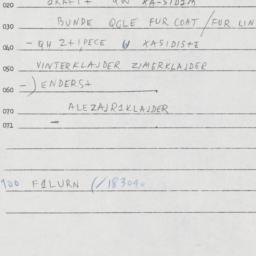 020
030 BUNDE QGLE FUR COAT / FUR LIN
040 - QU 2+1PECE V XASIDISTE
050 VINTERKLAJDER ZIMERKLAJDER
060 -) ENDERS+
070 ALEZAJRIKLAJDER
071 -
100 FALURN (/183090